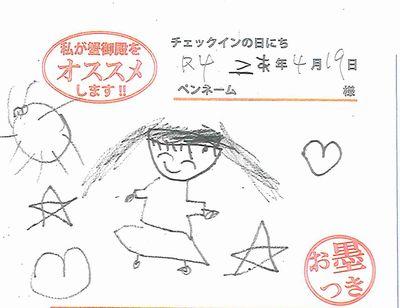 私が蟹御殿を
オススメ
します!!
チェックインの日にち
R4 年4月19日
ペンネーム 様
お墨
つき